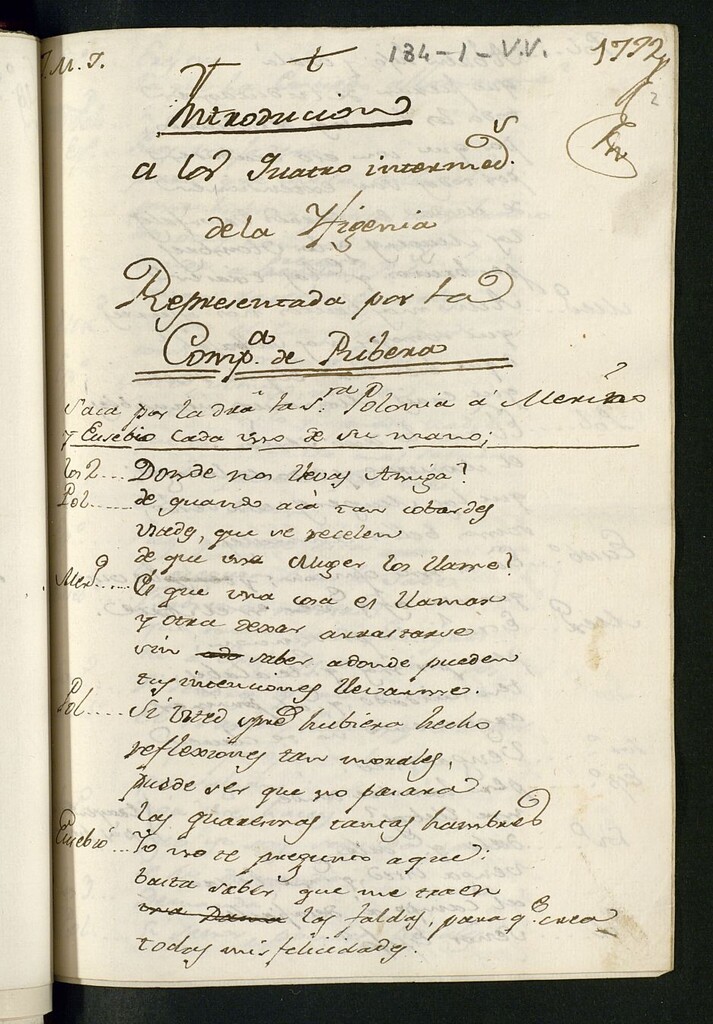 J. M. J.
184-1-V.V.
1772
2
Introducion
a los Quatro intermed.s
dela Ifigenia
Representada por la
Comp.a de Ribera
Saca por la dra la S.ra Polonia á Merino
y Eusebio cada uno de su mano;
los 2.... Donde nos llevas Amiga?
Pol..... de quando acá tan cobardes
ustedes, que se recelen
de que una Muger los llame?
Mer.o.... Es que una cosa es llamar
y otra dexar arrastrarse
sin saber adonde pueden
tus intenciones llevarme.
Pol.... Si usted spre hubiera hecho
reflexiones tan morales,
puede ser que no pasara
las quaresmas tantas hambres
Eusebio... Yo no te pregunto aque:
basta saber que me traen
una Dama las faldas, para q.e crea
todas mis felicidades.